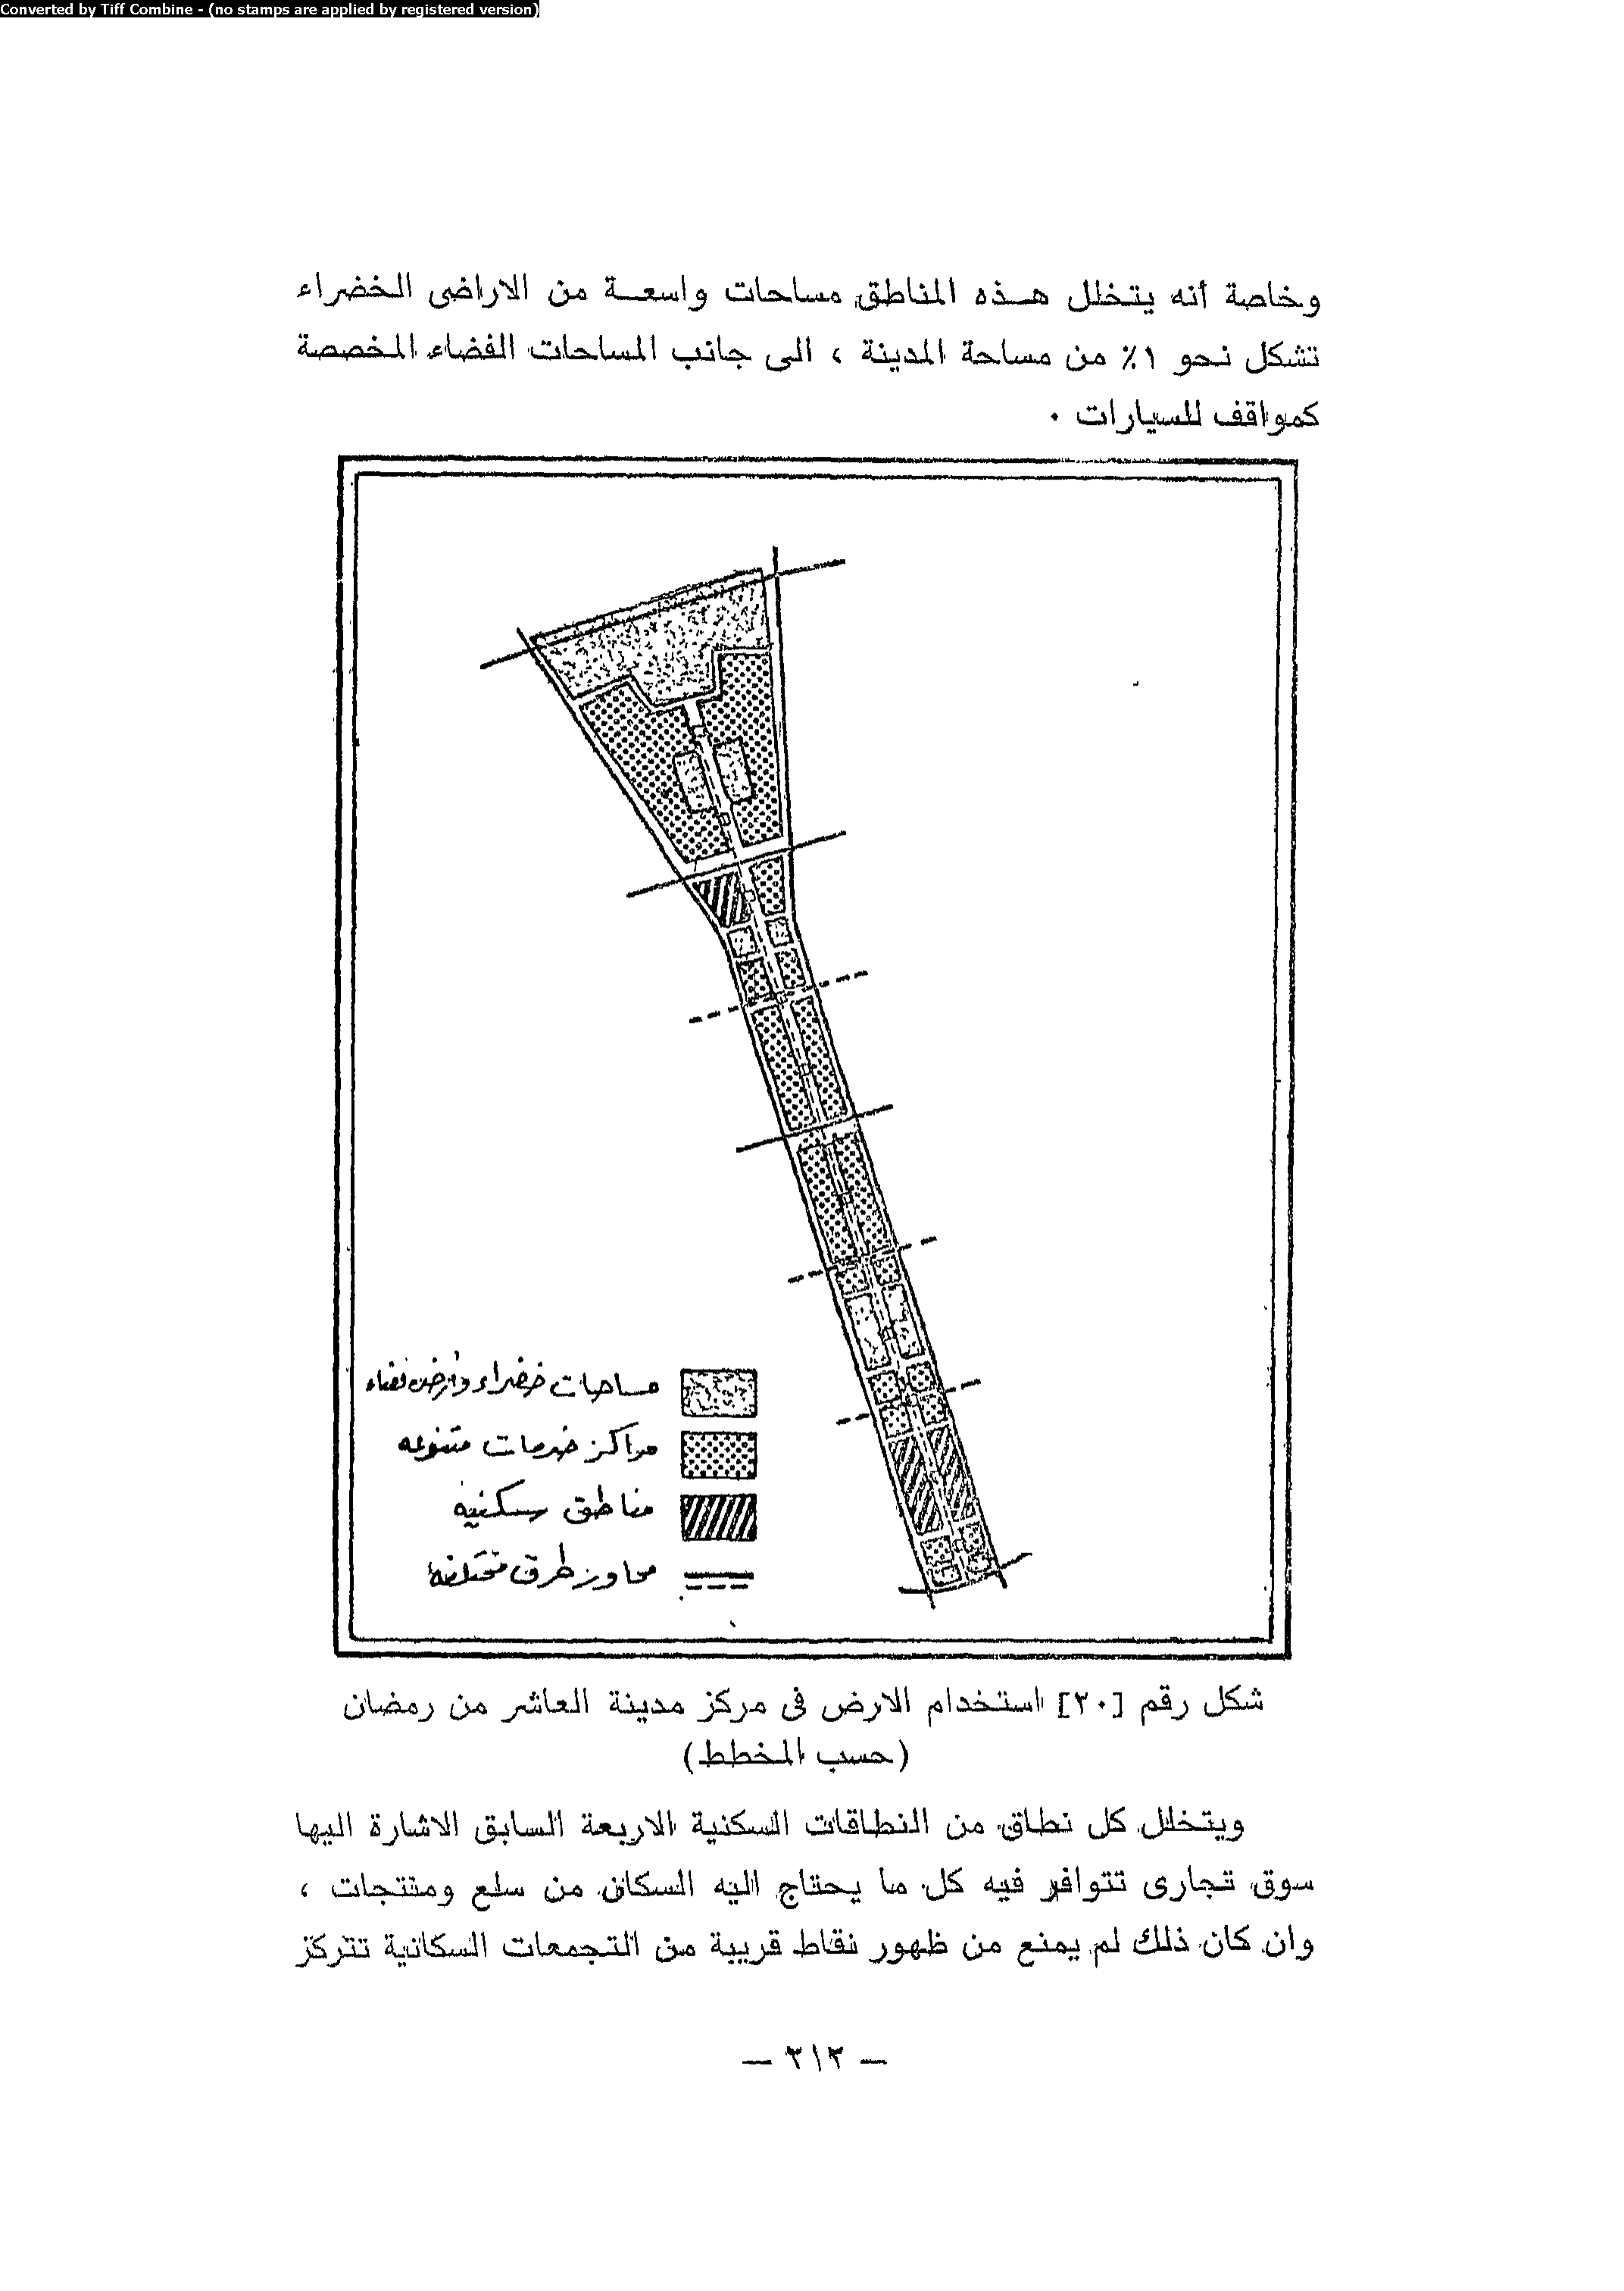 Converted by Tiff Combine - (no stamps are applied by registered version)
وخاصة أنه يتخلل هذه المناطق مساحات واسعة من الاراضى الخضراء
تشكل نحو ١٪ من مساحة المدينة ، الى جانب المساحات الفضاء المخصصة
كمواقف للسيارات .
مساحات خضراء وأرض فضاء
مراكز خدمات متنوعه
مناطق سكنيه
محاور طرق مختلفه
شكل رقم [٢٠] استخدام الارض فى مركز مدينة العاشر من رمضان
(حسب المخطط)
ويتخلل كل نطاق من النطاقات السكنية الاربعة السابق الاشارة اليها
سوق تجارى تتوافر فيه كل ما يحتاج اليه السكان من سلع ومنتجات ،
وان كان ذلك لم يمنع من ظهور نقاط قريبة من التجمعات السكانية تتركز
— ٢١٢ —